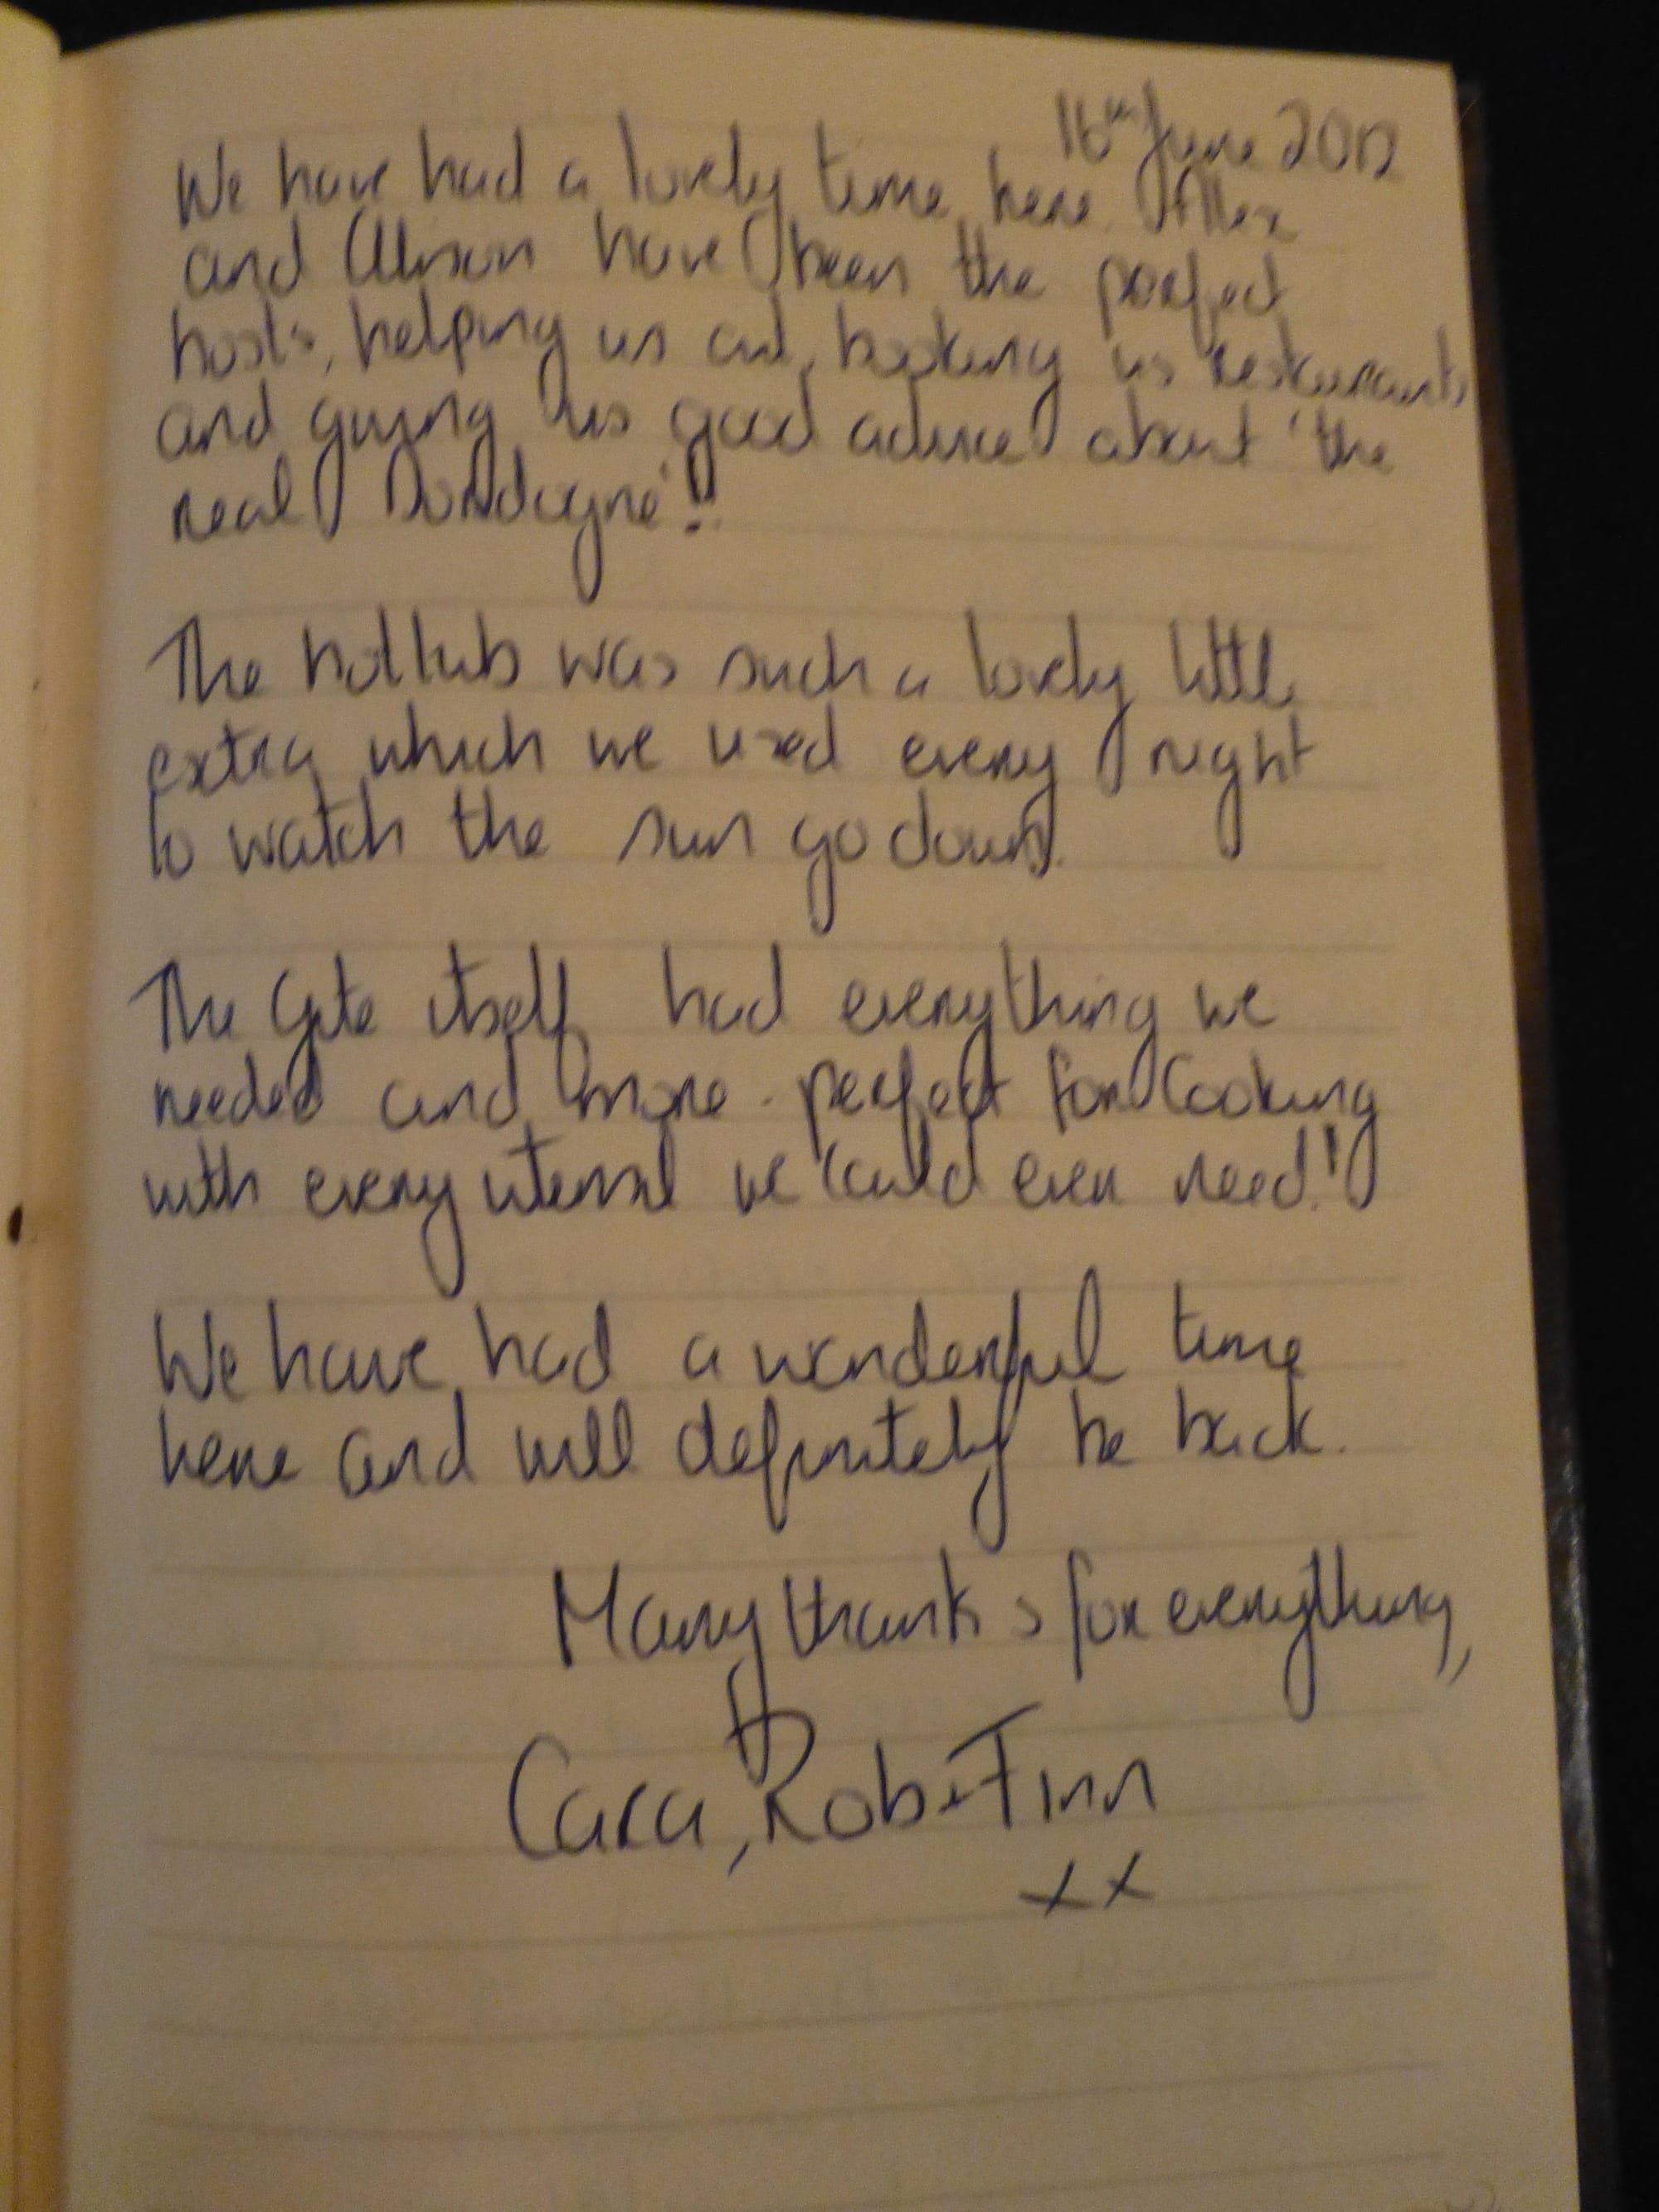 16th June 2012
We have had a lovely time here. Alex
and Alison have been the perfect
hosts, helping us out, booking us restaurants
and giving us good advice about 'the
real Dordogne'!!
The hot tub was such a lovely little
extra which we used every night
to watch the sun go down.
The Gite itself had everything we
needed and more - perfect for cooking
with every utensil we could ever need!
We have had a wonderful time
here and will definitely be back.
Many thanks for everything,
Cara, Rob + Finn
xx